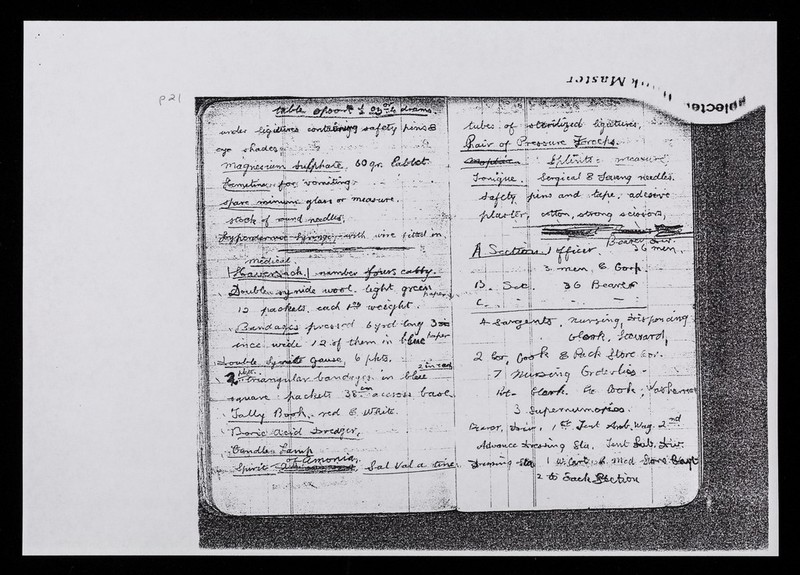 P21
table spoon ½ oz 4 drams.
under ligatures containing safety pins &
eye shades
magnesium sulphate, 60 gr. Tablet
for vomiting
spare minimum glass or measure.
stock of round needles,
Hypodermic Syringe, with wire fitted in
medical
Haversack, number fours carry.
Double cyanide wool, light green paper,
12 packets, each weight.
Bandages pressed 6 yd long 3
ince wide 12 of them in blue paper
Double gause, 6 pkts. 2 in each
triangular bandages in blue
square packets 38 in accross base
Tally Book, red & White.
Boric Acid Dredger,
Candles Lamp
Spirit of Amonia, Sal Val a tine
tubes of sterilized ligatures,
Pair of Pressure Forceps.
Splints measure
Tonique. Sergical & Saving needles,
safety pins and tape, adesive
plaster, cotton, strong scissors,
A Section 1 Officer. Bearer Div. 36 men.
3 men, & Corp
B. Sec. 36 Bearers
C. - - -
4 Sargents, nursing, Dispencing
Clerk, Steward,
2 Cor, Cook & Pack Store
7 Nursing Orderlies
Clerk. Cook, Washerman
3 Supernumories.
1st Tent Amb. Wag. 2nd
Advance Dressing Sta. Tent Sub. Div.
Dressing Sta 1 W. Cart, & Med Store Cart
2 to Each Section